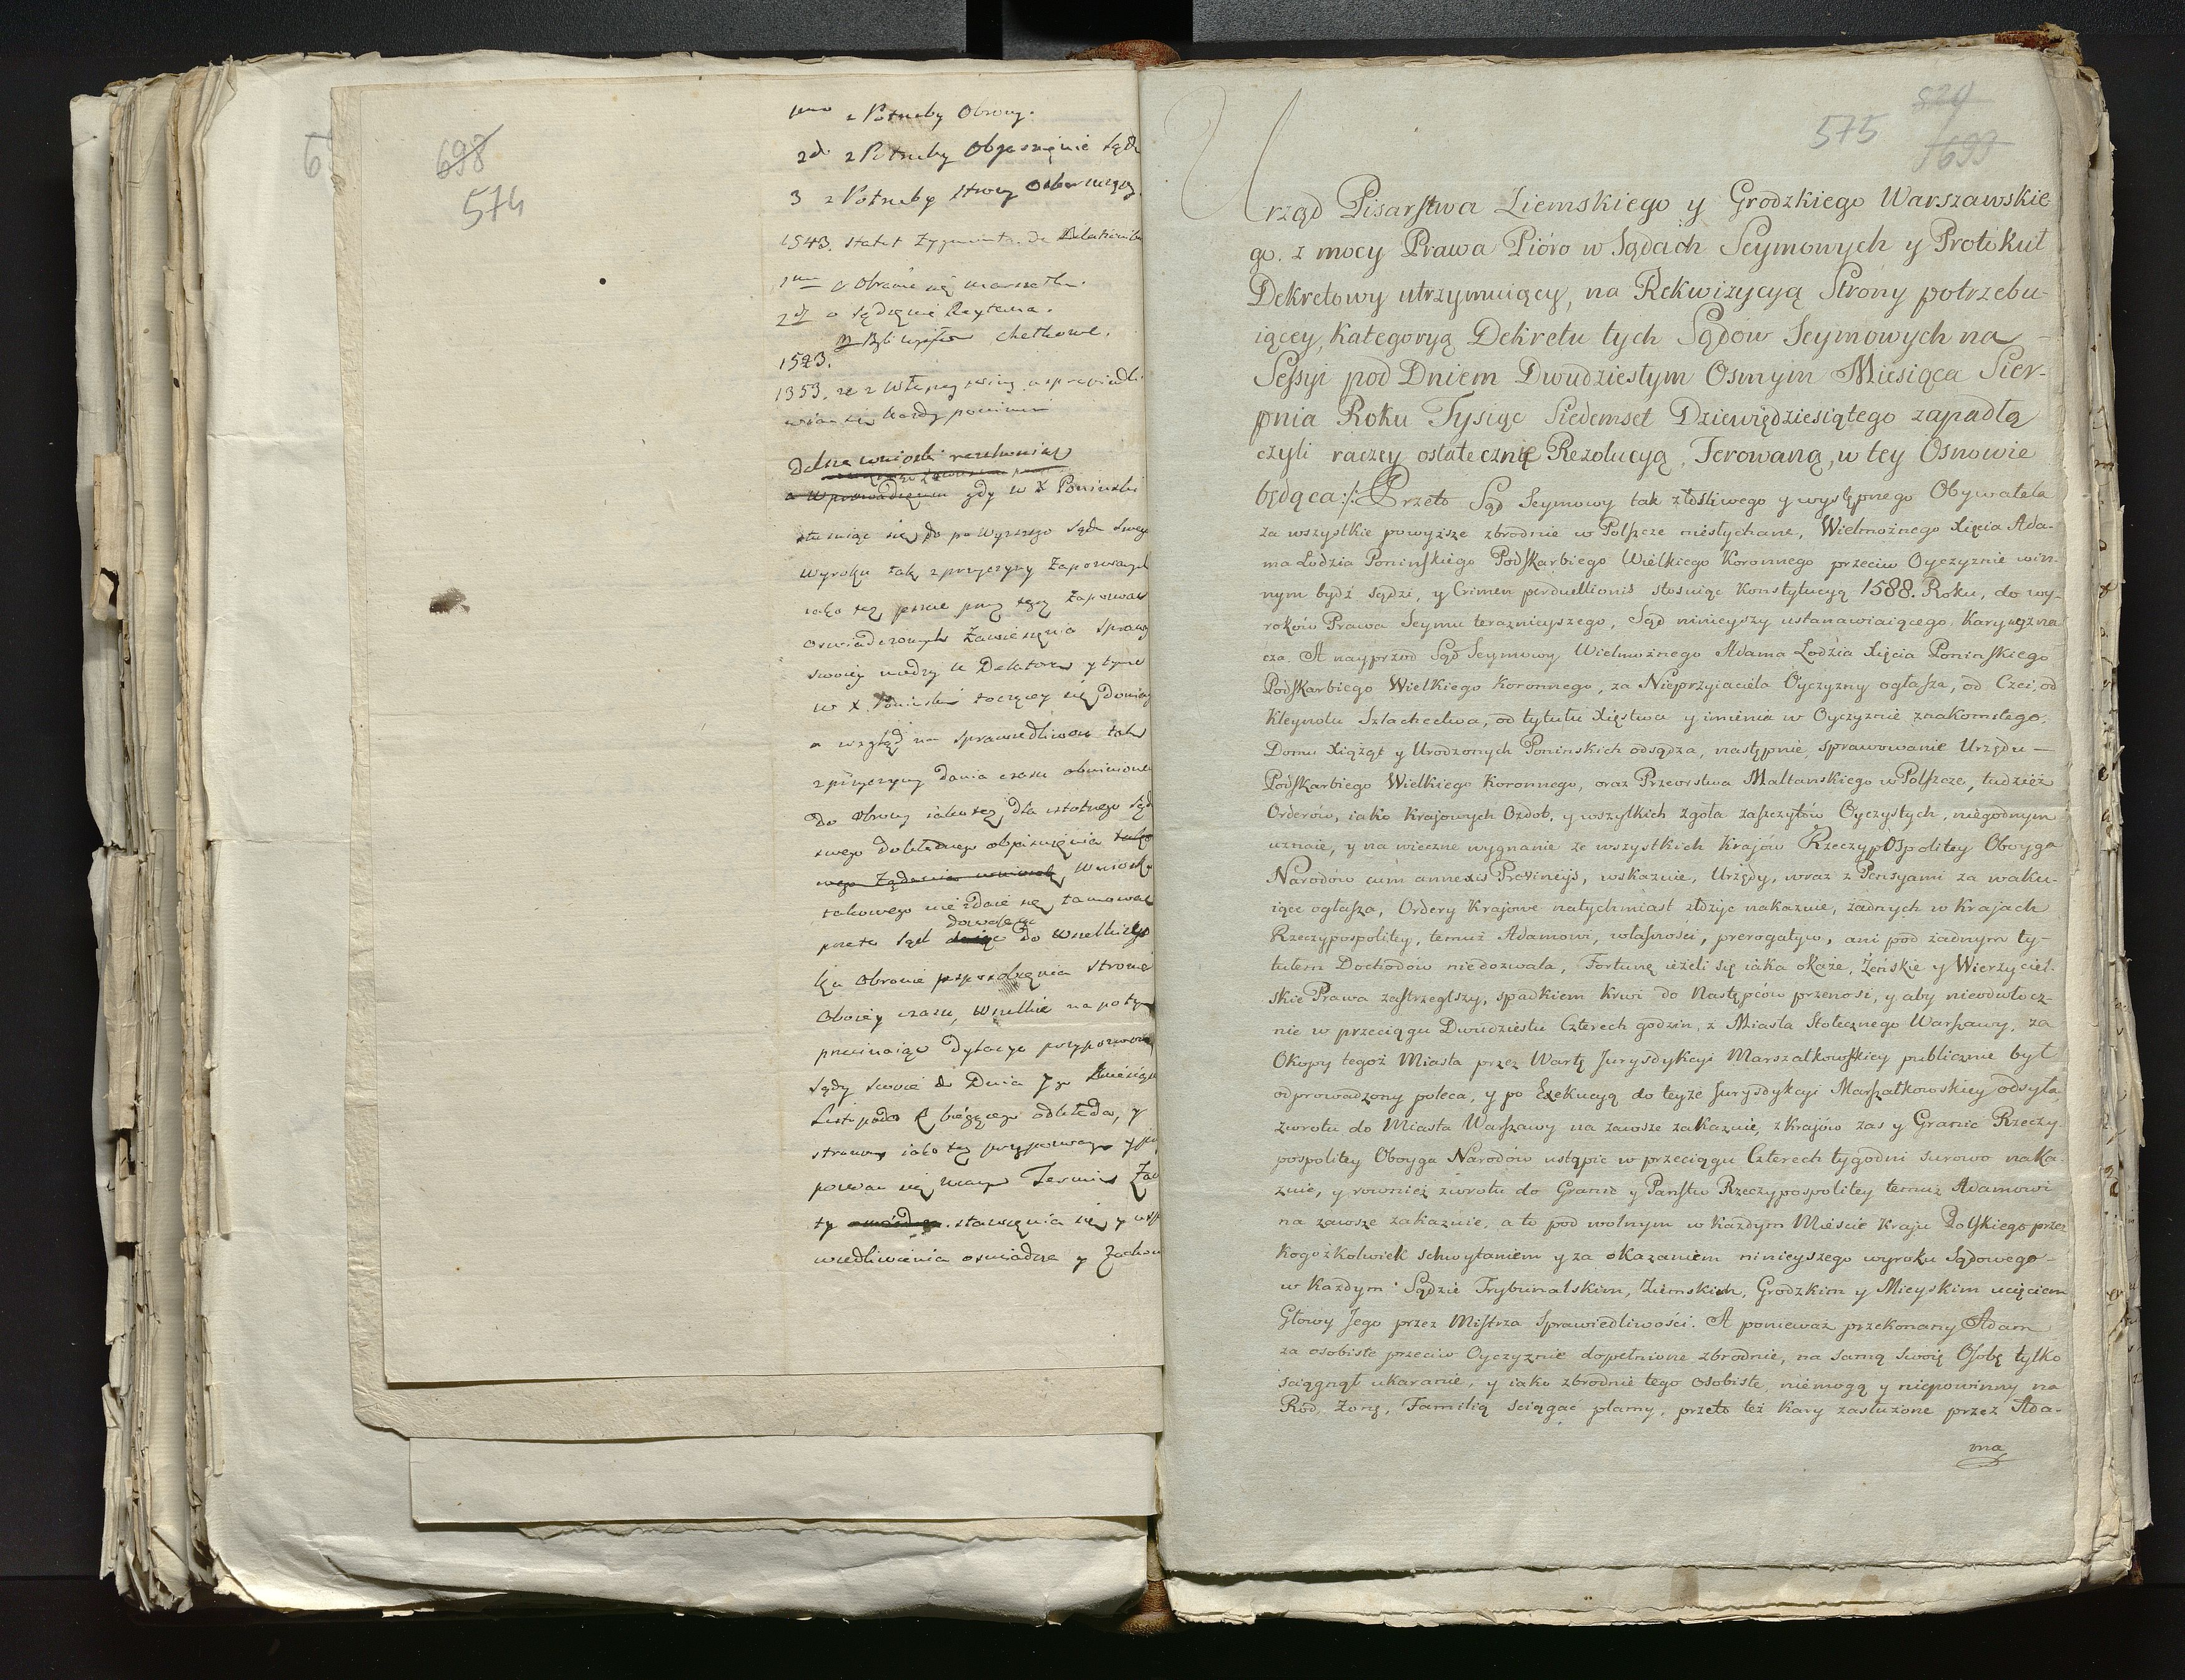 698
574
1mo z Potrzeby Obrony.
2do z Potrzeby Objasnięnie Sądu
3 z Potrzeby strony
1543. Statut Zygmunta. de
1mo o Obranie się marszałka.
2do o Sądzęnie Reytena.
1523.
1353. że z
każdy powinien
Dalsze wnioski
gdy w X Poninski
się do powyższego Sądu swego
wyroku tak z przyczyny Zapozwanych
iako też przez Zapozwan
oswiadczonych Zawieszęnia sprawy
swoiey między U Delatorem y tymże
w X. Poninskim toczącey się
a wzgląd na sprawiedliwość tak
z przyczyny dania czasu obwinionem
do obrony iako też dla istotnego Sąd
swego dokładnego obiasnięnia
wniosku
takowego nie zdaie się tamować
dozwalaiąc
przeto Sąd do wszelkiego
ku obronie przysposobięnia stronie
Oboiey czasu, wszelkie na potym
przecinaiąc dylacye przypozwow
Sądy swoie do Dnia 7go Miesiąca
Listopada R bieżącego odkłada, y
stronom iako też przypozwanym
pozwać się maiącym Termin Za
ty stawięnia się y uspra
wiedliwienia oswiadcza y Zachow
824
575
699
Urząd Pisarstwa Ziemskiego y Grodzkiego Warszawskie
go. z mocy Prawa Pióro w Sądach Seymowych y Protokuł
Dekretowy utrzymuiący, na Rekwizycyą Strony potrzebu-
iącey, Kategoryą Dekretu tych Sądow Seymowych na -
Sessyi pod Dniem Dwudziestym Osmym Miesiąca Sier-
pnia Roku Tysiąc Siedemset Dziewiędziesiątego zapadłą
czyli raczey ostatecznię Rezolucyą, Ferowaną, w tey Osnowie
będąca :/: Przeto Sąd Seymowy tak złośliwego y występnego Obywatela
za wszystkie powyższe zbrodnie w Polszcze niesłychane, Wielmożnego Xięcia Ada-
ma Lodzia Poninskiego Podskarbiego Wielkiego Koronnego przeciw Oyczyznie win-
nym bydź sądzi, y Crimen perduellionis stosuiąc Konstytucyą 1588. Roku, do wy-
roków Prawa Seymu teraznieyszego, Sąd ninieyszy ustanawiaiącego. Kary wyzna
cza. A nayprzod Sąd Seymowy Wielmożnego Adama Łodzia Xięcia Poninskiego
Podskarbiego Wielkiego Koronnego, za Nieprzyiaciela Oyczyzny ogłasza, od Czci, od
Kleynotu Szlachectwa, od tytułu Xięstwa y imienia w Oyczyznie znakomitego.
Domu Xiążąt y Urodzonych Poninskich odsądza, następnie, sprawowanie Urzędu —
Podskarbiego Wielkiego Koronnego, oraz Przeorstwa Maltanskiego w Polszcze, tudzież
Orderów, iako Krajowych Ozdob, y wszytkich zgoła zaszczytów Oyczystych, niegodnym
uznaie, y na wieczne wygnanie ze wszystkich Krajów RzeczypOspolitey Oboyga
Narodów cum annexis Provincys, wskazuie, Urzędy, wraz z Pensyami za waku-
iące ogłasza, Ordery Krajowe natychmiast złożyc nakazuie, żadnych w Krajach
Rzeczypospolitey, temuż Adamowi, własności, prerogatyw, ani pod żadnym ty-
tułem Dochodów niedozwala, Fortunę ieżeli się iaka okaże, Żeńskie y Wierzyciel-
skie Prawa zastrzegłszy, spadkiem Krwi do Następców przenosi, y aby nieodwłocz-
nie w przeciągu Dwudziestu Czterech godzin, z Miasta Stołecznego Warszawy, za
Okopy tegoż Miasta przez Wartę Jurysdykcyi Marszałkowskiey publicznie był
odprowadzony poleca, y po Exekucyą do teyże Jurysdykcyi Marszałkowskiey odsyła
zwrotu do Miasta Warszawy na zawsze zakazuie, z Krajów zas y Granic Rzeczy
pospolitey Oboyga Narodów ustąpic w przeciągu Czterech tygodni surowo naka-
zuie, y rownież zwrotu do Granic y Państw Rzeczypospolitey temuż Adamowi
na zawsze zakazuie, a to pod wolnym w Każdym Mieście Kraju Polskiego przez
Kogożkolwiek schwytaniem y za okazaniem ninieyszego wyroku Sądowego -
w Każdym Sądzie Trybunalskim, Ziemskim, Grodzkim y Mieyskim ucięciem
Głowy Jego przez Mistrza Sprawiedliwości. A ponieważ przekonany Adam
za osobiste przeciw Oyczyznie dopełnione zbrodnie, na samą swoię Osobę tylko
sciągnął ukaranie, y iako zbrodnie tego osobiste, niemogą y niepowinny na
Ród, Żonę, Familią sciągać plamy, przeto też Kary zasłużone przez Ada-
ma